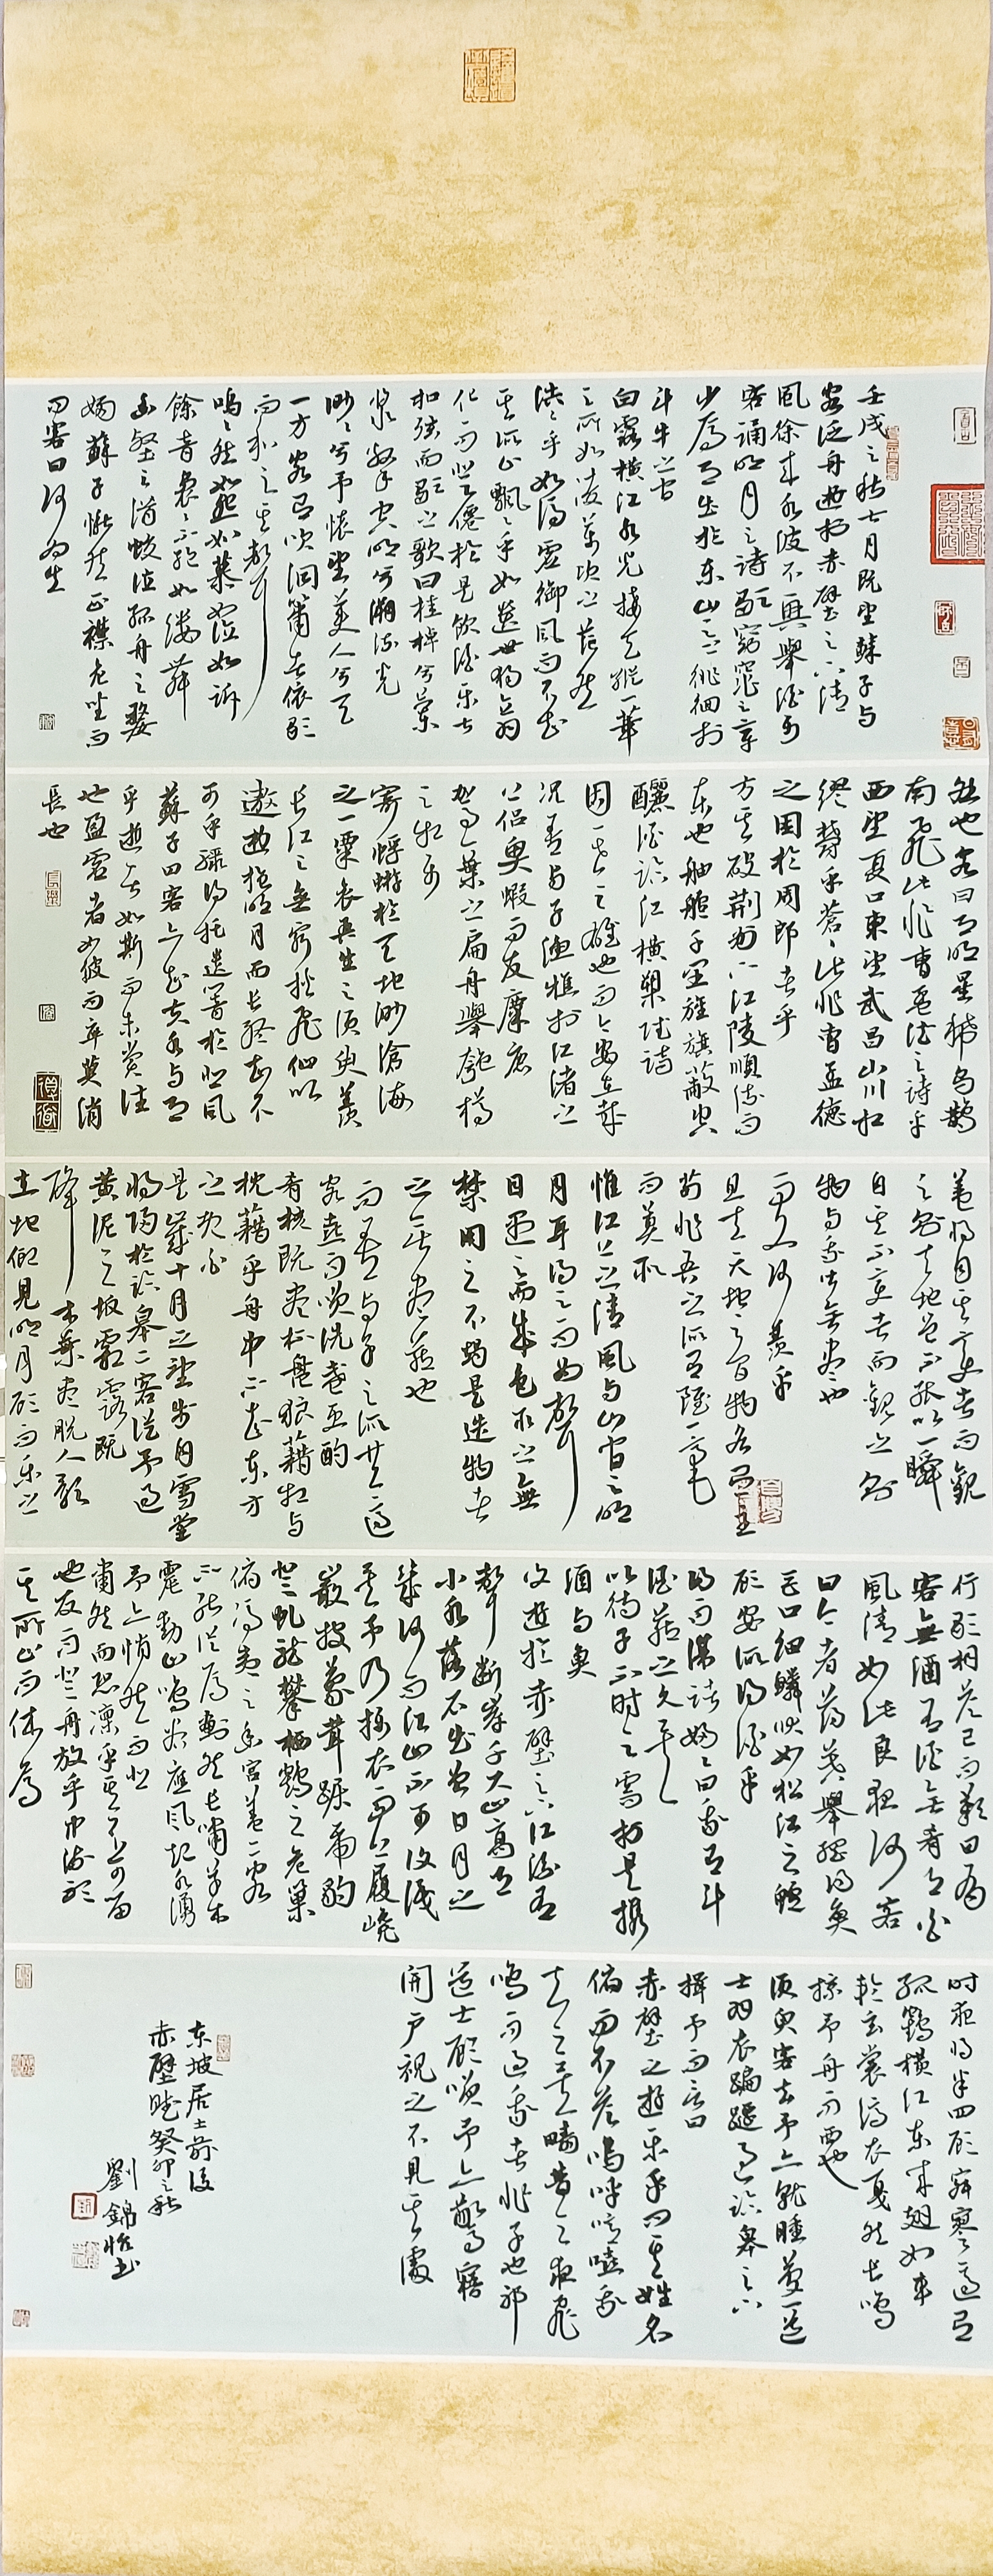 壬戌之秋七月既望蘇子与
客泛舟遊於赤壁之下清
風徐来水波不興舉酒属
客誦明月之詩歌窈窕之章
少焉月出於东山之上徘徊於
斗牛之间
白露横江水光接天縦一葦
之所如凌萬顷之茫然
浩浩乎如馮虚御風而不知
其所止飄飄乎如遗世独立羽
化而登僊於是飲酒乐甚
扣弦而歌之歌曰桂棹兮蘭
桨擊空明兮溯流光
渺渺兮予懐望美人兮天
一方客有吹洞簫者依歌
而和之其聲
鳴鳴然如怨如慕如泣如訴
餘音裊裊不絶如縷舞
幽壑之潜蛟泣孤舟之嫠
婦蘇子愀然正襟危坐而
问客曰何为其
然也客曰月明星稀乌鹊
南飛此非曹孟德之詩乎
西望夏口東望武昌山川相
繆鬱乎蒼蒼此非曹孟德
之困於周郎者乎
方其破荆州下江陵順流而
东也舳艫千里旌旗蔽空
釃酒臨江横槊賦詩
固一世之雄也而今安在哉
况吾与子漁樵於江渚之
上侣魚蝦而友麋鹿
駕一葉之扁舟舉匏樽
以相属
寄蜉蝣於天地渺滄海
之一粟哀吾生之須臾羡
长江之無窮挟飛仙以
遨遊抱明月而长终知不
可乎驟得托遺響於悲風
蘇子曰客亦知夫水与月
乎逝者如斯而未嘗往
也盈虚者如彼而卒莫消
長也
蓋将自其変者而觀
之則天地曾不能以一瞬
自其不変者而觀之則
物与我皆無盡也
而又何羨乎
且夫天地之间物各有主
苟非吾之所有雖一毫
而莫取
惟江上之清風与山间之明
月耳得之而为聲
目遇之而成色取之無
禁用之不竭是造物者
之無盡藏也
而吾与子之所共適
客喜而笑洗盏更酌
肴核既盡杯盤狼藉相与
枕藉乎舟中不知东方
之既白
是歲十月之望步自雪堂
将歸於臨皋二客従予過
黄泥之坂霜露既
降木葉盡脱人影
在地仰見明月顧而乐之
行歌相答已而歎曰有
客無酒有酒無肴月白
風清如此良夜何客
曰今者薄暮舉網得魚
巨口細鱗状如松江之鱸
顧安所得酒乎
歸而謀諸婦婦曰我有斗
酒藏之久矣
以待子不時之需於是携
酒与魚
復遊於赤壁之下江流有
聲断岸千尺山高月
小水落石出曾日月之
幾何而江山不可復識
矣予乃攝衣而上履巉
巖披蒙茸踞虎豹
登虬龍攀栖鶻之危巢
俯馮夷之幽宫蓋二客
不能従焉劃然长嘯草木
震動山鳴谷應風起水湧
予亦悄然而悲
肅然而恐凛乎其不可留
也反而登舟放乎中流聴
其所止而休焉
时夜将半四顧寂寥適有
孤鶴横江东来翅如車
輪玄裳缟衣戛然长鳴
掠予舟而西也
須臾客去予亦就睡夢一道
士羽衣蹁躚過臨皋之下
揖予而言曰
赤壁之遊乐乎问其姓名
俯而不答嗚呼噫嘻我
知之矣疇昔之夜飛
鳴而過我者非子也邪
道士顧笑予亦驚寤
開户視之不見其處
东坡居士前後
赤壁賦癸卯之秋
劉錦怡书